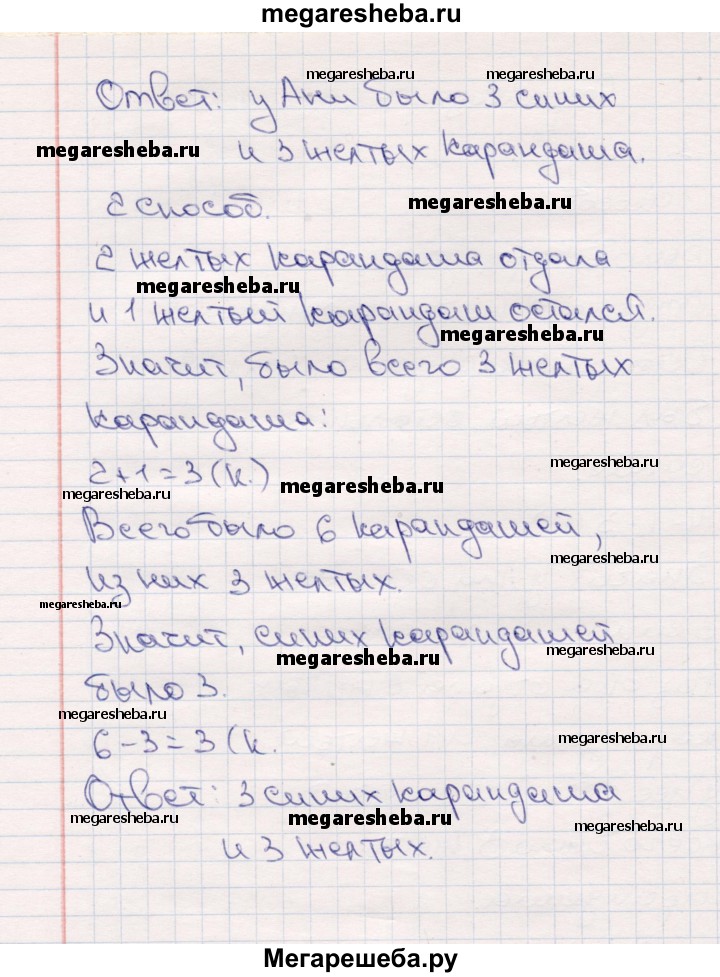 megaresheba.ru
megaresheba.ru megaresheba.ru
Ответ: у Ани было 3 синих
megaresheba.ru и 3 желтых карандаша.
2 способ. megaresheba.ru
2 желтых карандаша отдала
megaresheba.ru
и 1 желтый карандаш остался.
megaresheba.ru
Значит, было всего 3 желтых
карандаша:
megaresheba.ru
2+1=3 (к.)
megaresheba.ru megaresheba.ru
Всего было 6 карандашей,
megaresheba.ru
из них 3 желтых.
megaresheba.ru
Значит, синих карандашей
megaresheba.ru megaresheba.ru
было 3.
megaresheba.ru
6-3=3 (к.
megaresheba.ru
Ответ: 3 синих карандаша
megaresheba.ru megaresheba.ru megaresheba.ru
и 3 желтых.
Мегарешеба.ру